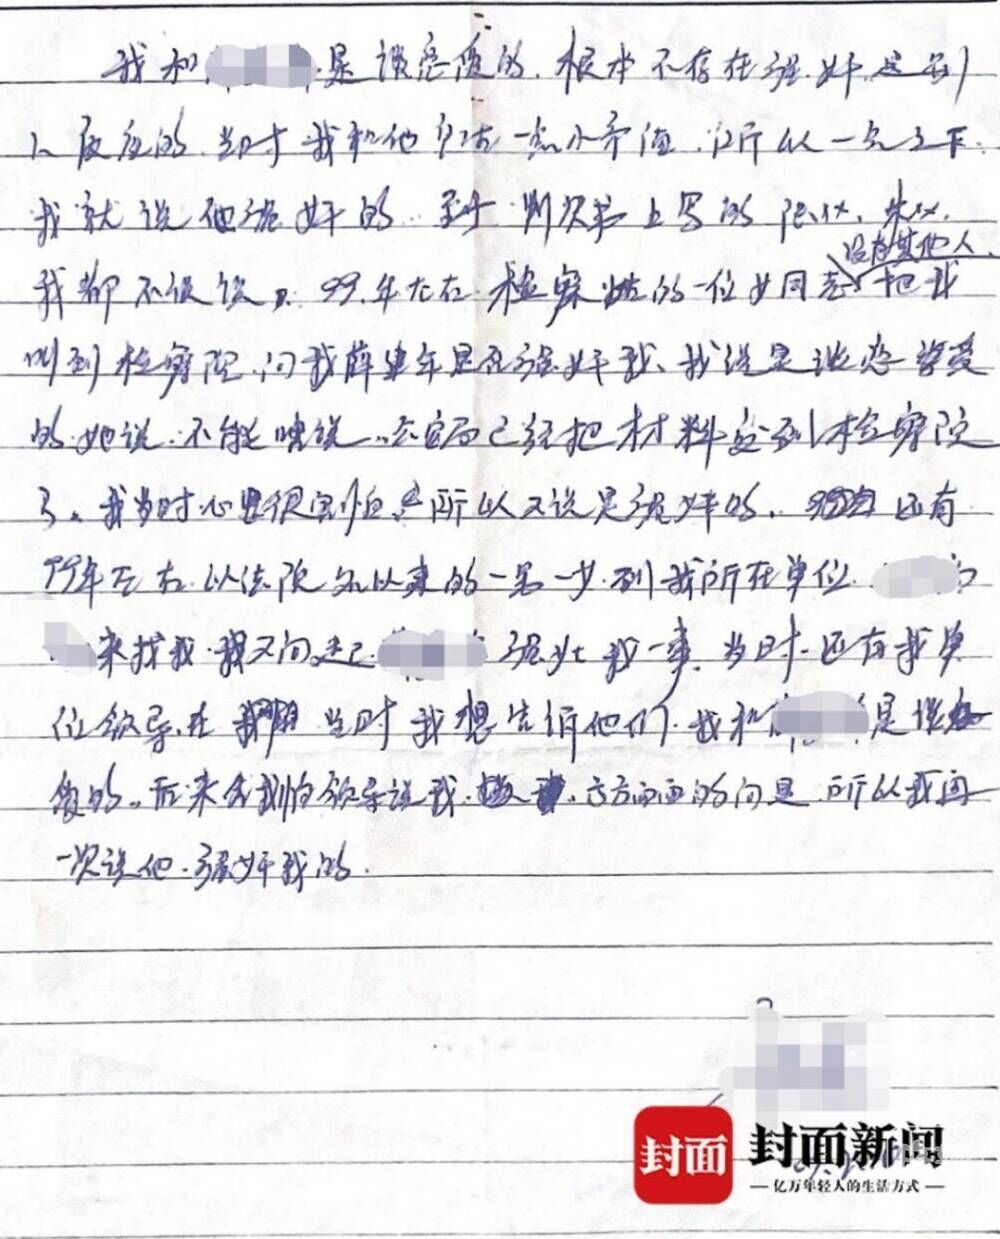 我和 是谈恋爱的，根本不存在强奸，是别
人反应的，当时我和他 一点小矛盾，所以一气之下
我就说他强奸的。至于判决书上写的 朱××，
没有其他人
我都不认识。99年左右检察院的一位女同志把我
叫到检察院，问我薛 年是否强奸我，我说是谈恋爱
的，她说，不能瞎说，公安局已经把材料交到检察院
了。我当时心里很害怕，所以又说是强奸的。还有
99年左右，以法院 来的一男一女到我所在单位
来找我，我又问起 强奸我一事，当时还有我单
位领导在 当时我想告诉他们，我和 是谈
爱的。后来 我怕领导说我， 方方面面的问题，所以我再
一次说他强奸我的。
封面
封面新闻
亿万年轻人的生活方式